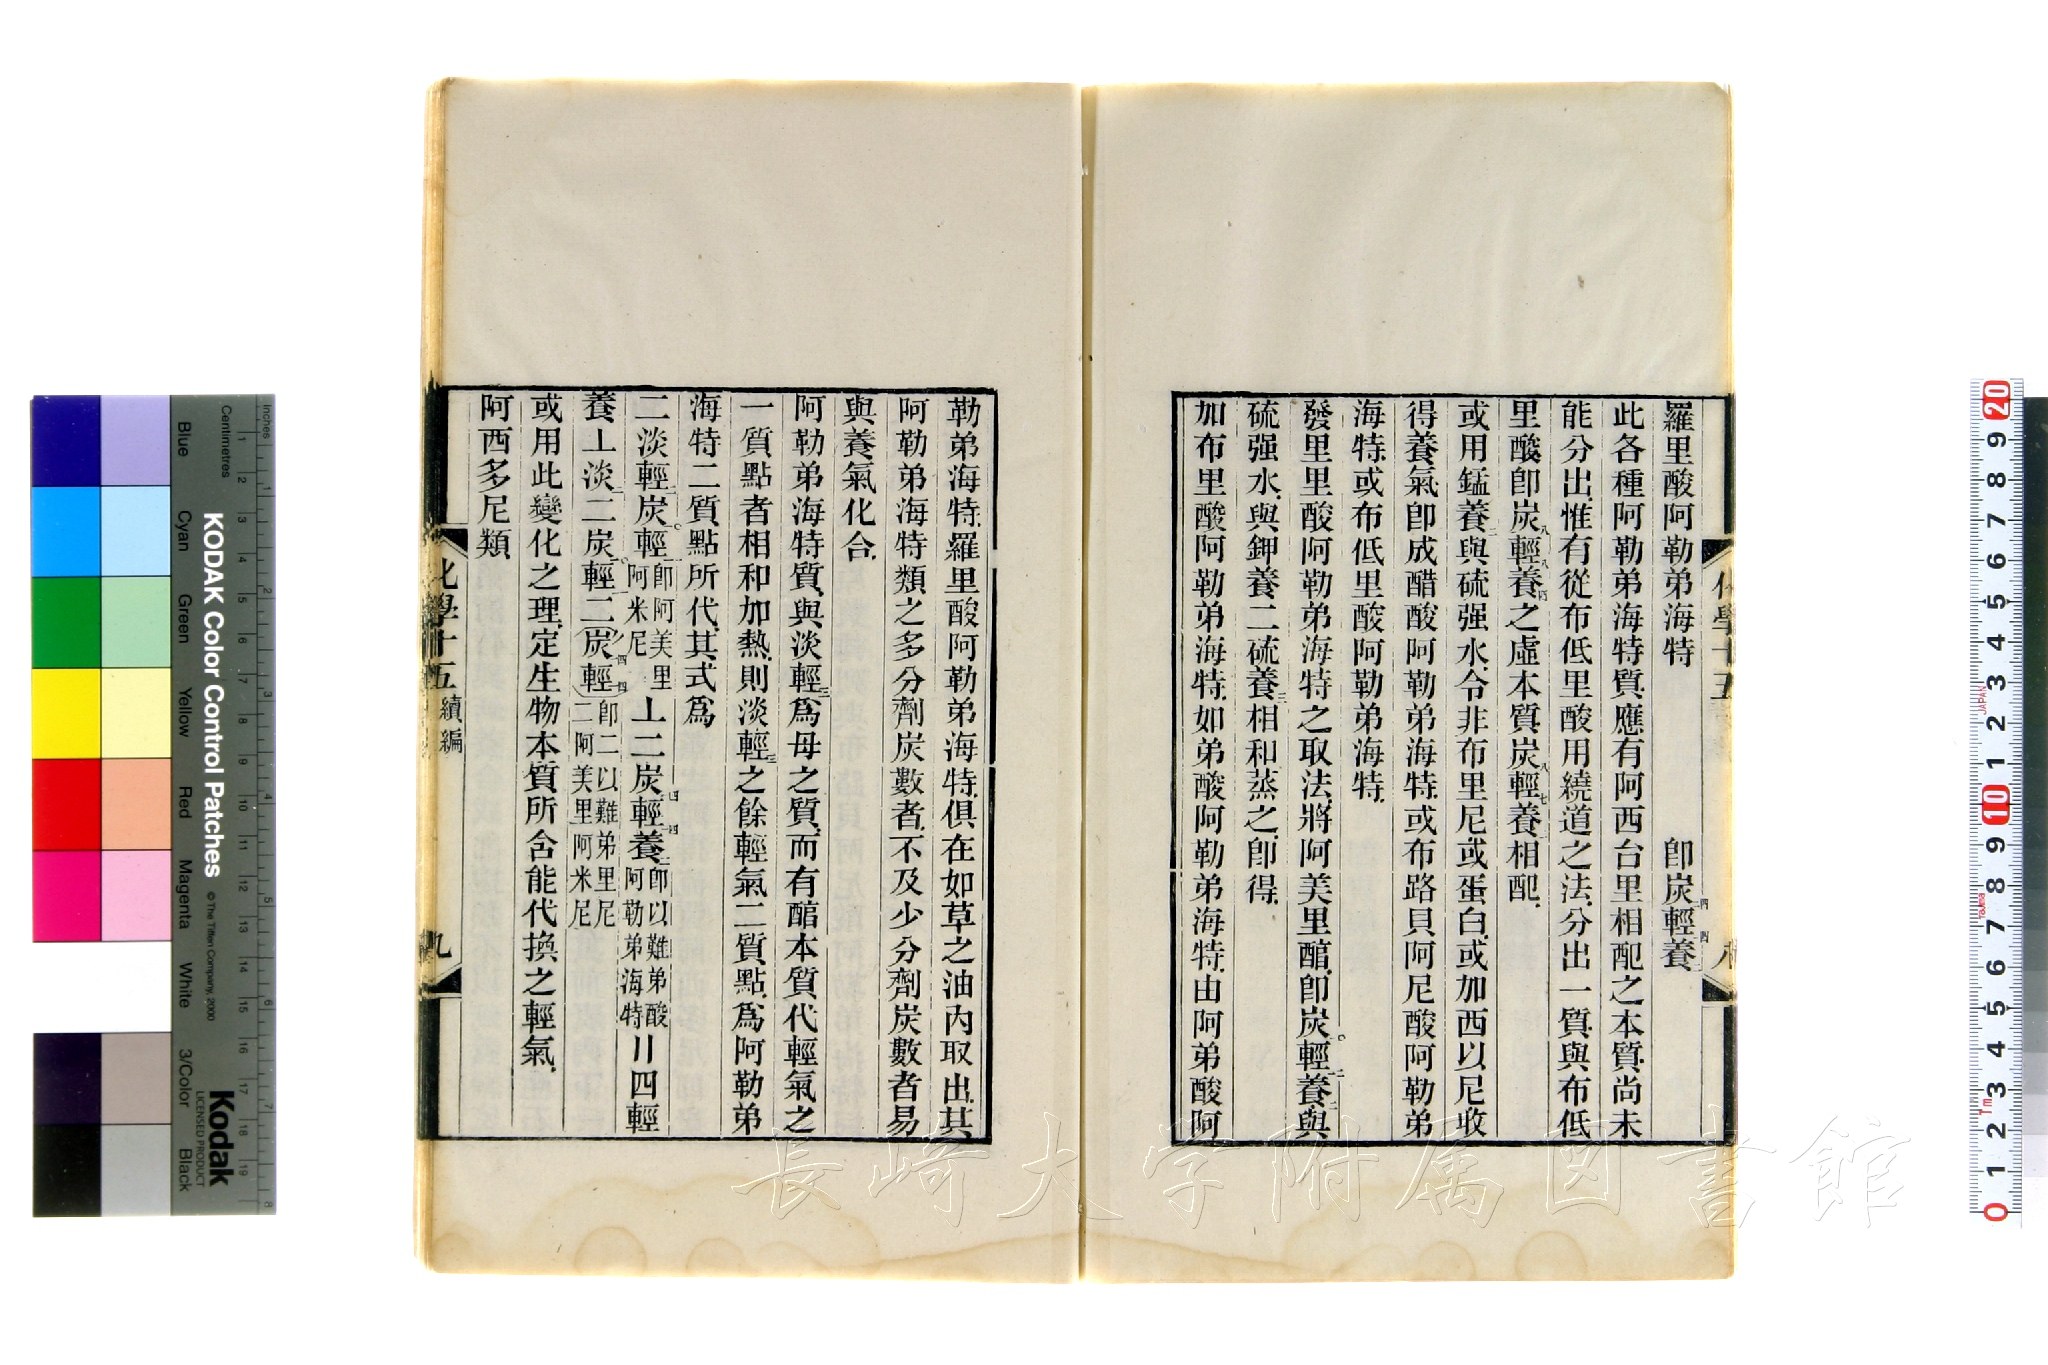 羅里酸阿勒弟海特 卽炭輕養
此各種阿勒弟海特質應有阿西台里相配之本質尚未
能分出惟有從布低里酸用繞道之法分出一質與布低
里酸卽炭八輕八養四之虛本質炭八輕七養相配
或用錳養二與硫强水令非布里尼或蛋白或加西以尼收
得養氣卽成醋酸阿勒弟海特或布路貝阿尼酸阿勒弟
海特或布低里酸阿勒弟海特
發里里酸阿勒弟海特之取法將阿美里醕卽炭輕養與
硫强水與鉀養二硫養三相和蒸之卽得
加布里酸阿勒弟海特如弟酸阿勒弟海特由阿弟酸阿
勒弟海特羅里酸阿勒弟海特俱在如草之油內取出其
阿勒弟海特類之多分劑炭數者不及少分劑炭數者易
與養氣化合
阿勒弟海特質與淡輕三爲母之質而有醕本質代輕氣之
一質點者相和加熱則淡輕三之餘輕氣二質點爲阿勒弟
海特二質點所代其式爲
二淡輕二炭輕卽阿美里阿米尼⊥二炭四輕四養二卽以難弟酸阿勒弟海特〢四輕
養⊥淡二二炭輕二(炭四輕四)卽二以難弟里尼二阿美里阿米尼
或用此變化之理定生物本質所含能代換之輕氣
阿西多尼類
化學十五續編
九
化學十五
長崎大学附属図書館
KODAK Color Control Patches
© The Tiffen Company, 2000
Kodak
LICENSED PRODUCT
Inches
Centimetres
Blue
Cyan
Green
Yellow
Red
Magenta
White
3/Color
Black
JAPAN